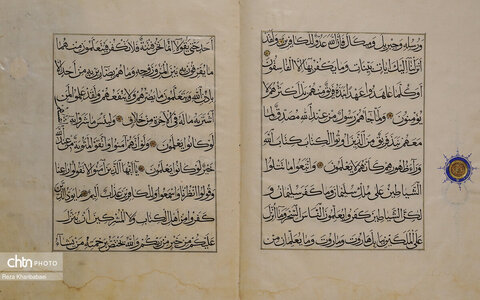 ورسله وجبريل وميكال فان الله عدو للكافرين ولقد
انزلنا اليك ايات بينات وما يكفر بها الا الفاسقون
اوكلما عاهدوا عهدا نبذه فريق منهم بل اكثرهم لا
يؤمنون ولما جاءهم رسول من عند الله مصدق لما
معهم نبذ فريق من الذين اوتوا الكتاب كتاب الله
وراء ظهورهم كانهم لا يعلمون واتبعوا ما تتلوا
الشياطين على ملك سليمان وما كفر سليمان و
لكن الشياطين كفروا يعلمون الناس السحر وما انزل
على الملكين ببابل هاروت وماروت وما يعلمان من
احد حتى يقولا انما نحن فتنة فلا تكفر فيتعلمون منهما
ما يفرقون به بين المرء وزوجه وما هم بضارين به من احد الا
باذن الله ويتعلمون ما يضرهم ولا ينفعهم ولقد علموا لمن
اشتريه ما له في الاخرة من خلاق ولبئس ما شروا به
لو كانوا يعلمون ولو انهم امنوا واتقوا لمثوبة من عند الله
خير لو كانوا يعلمون يا ايها الذين امنوا لا تقولوا راعنا
وقولوا انظرنا واسمعوا وللكافرين عذاب اليم ما يود الذين
كفروا من اهل الكتاب ولا المشركين ان ينزل
عليكم من خير من ربكم والله يختص برحمته من يشاء
chtn PHOTO
Reza Khanbabaei